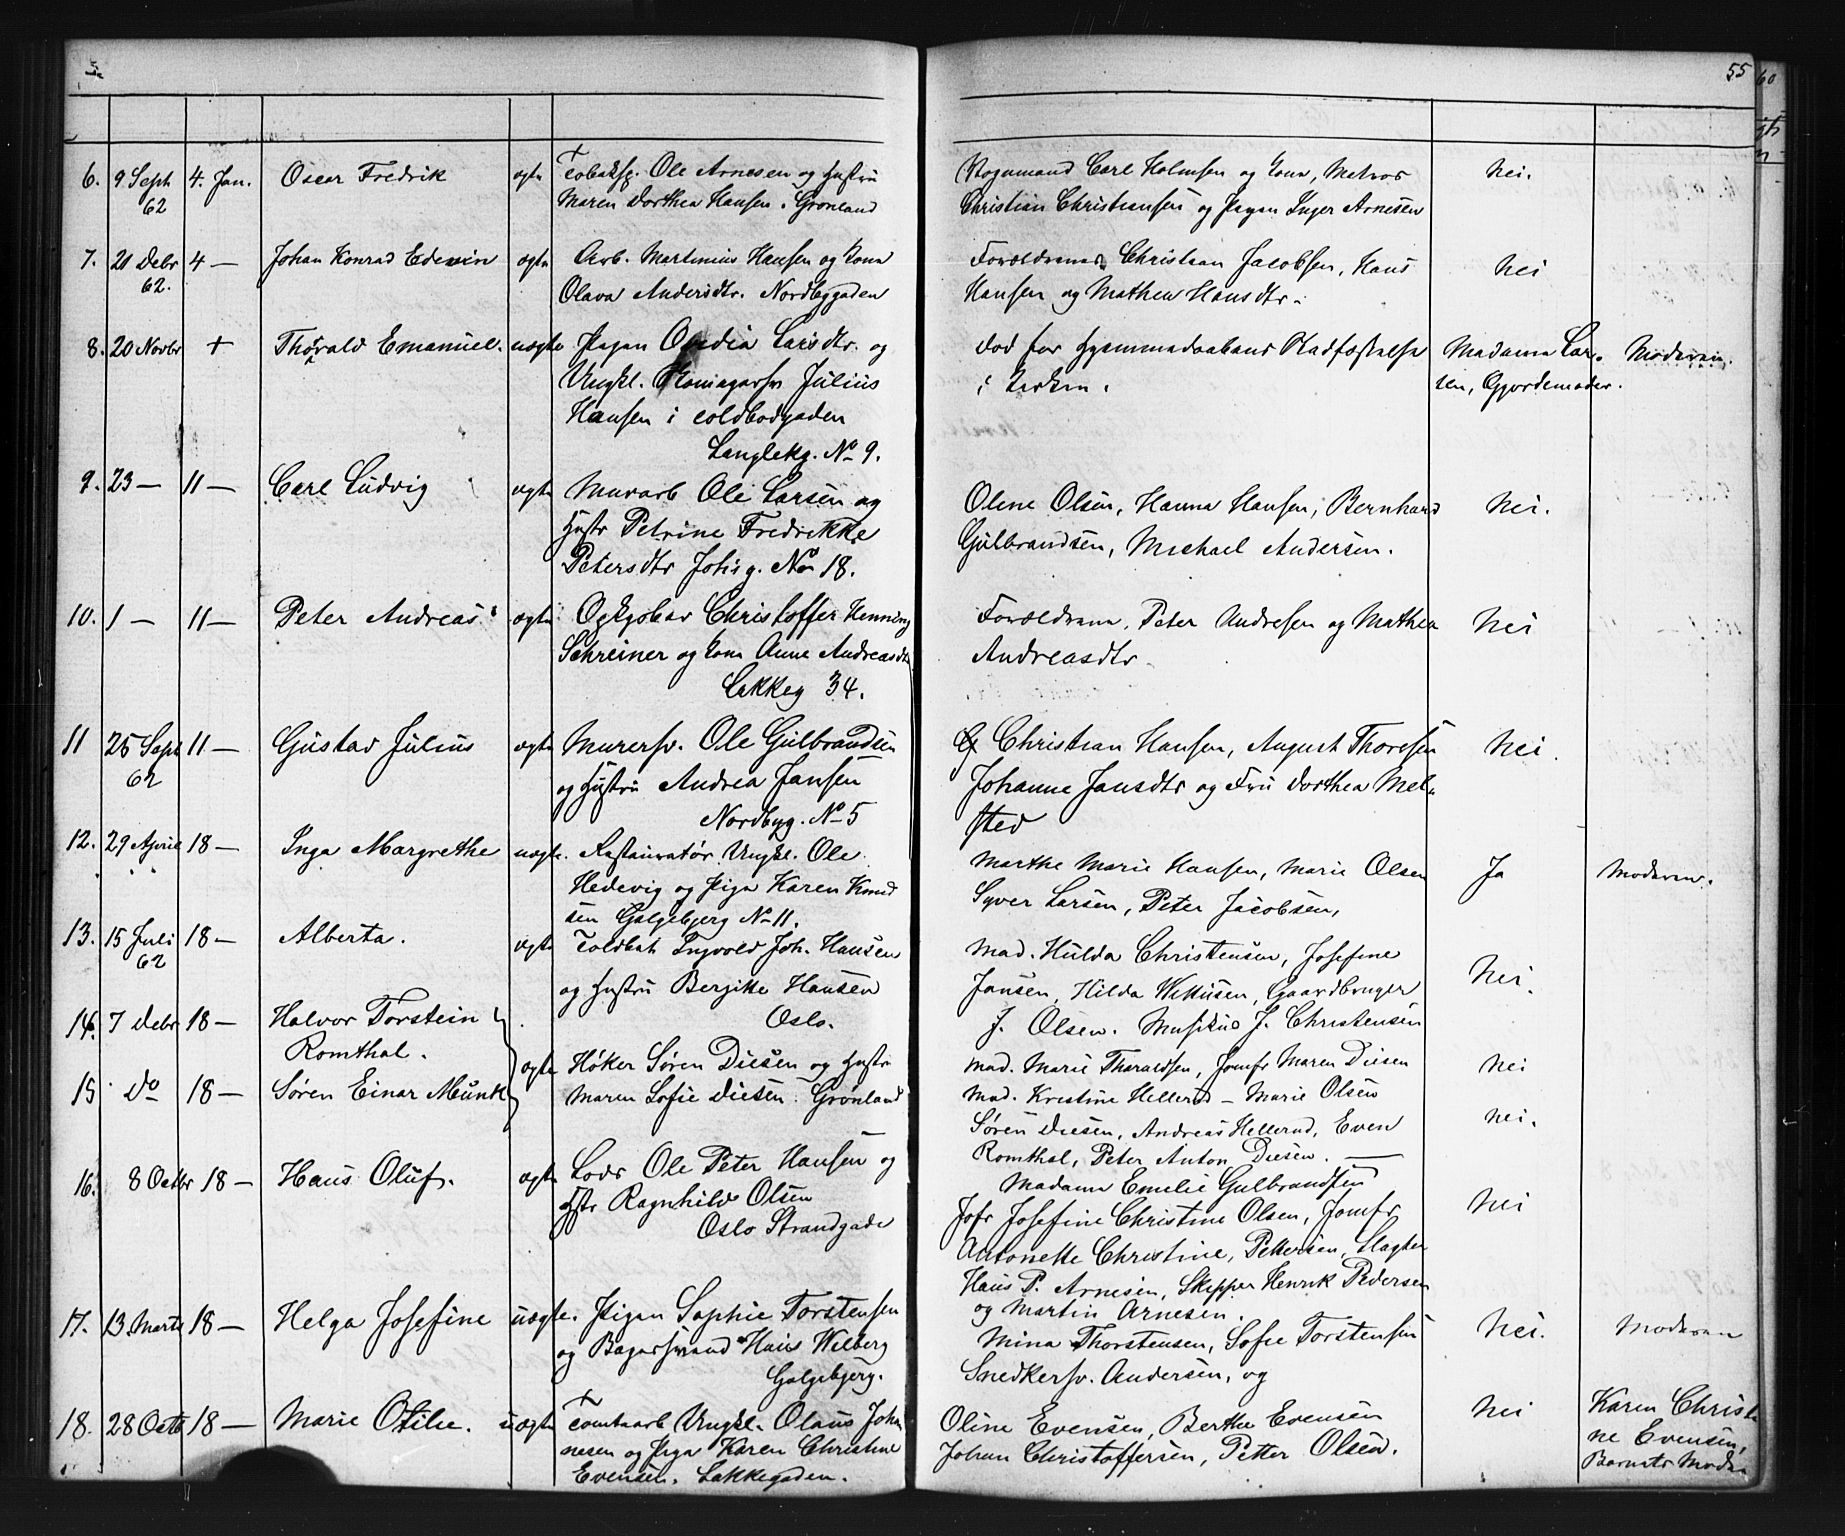 55
60
6. 9 Sept 62 4. Jan. Oscar Fredrik ægte Tobaksp. Ole Arnesen og Hustru
Maren Dorthea Hansen. Grønland
Carl Holmsen og Kone, Matros Nei.
Christian Christiansen og Pigen Inger Arnesen
7. 21 Debr 62. 4 — Johan Konrad Edevin ægte Arb. Martinius Hansen og Kone
Olava Andersdtr. Nordbygaden
Forældrene, Christian Jacobsen, Hans Nei
Hansen og Mathea Hansdtr.
8. 20 Novbr + Thorvald Emanuel. uægte Pigen Ovidia Larsdtr. og
Ungkl. Julius
Hansen i Toldbodgaden
Langlekg. No 9.
Død før Hjemmedaabens Stadfæstelse Madame Lar- Moderen.
i Kirken. sen, Gjordemoder.
9. 23 — 11 — Carl Ludvig ægte Murarb Ole Larsen og
Hustr Petrine Fredrikke
Petersdtr Johsg. No 18.
Olene Olsen, Hanna Hansen, Bernhard Nei.
Gulbrandsen, Michael Andersen.
10. 1 — 11 — Peter Andreas ægte Christoffer Henning
Schreiner og Kone Anne Andreasdtr
Lakkeg 34.
Forældrene, Peter Andresen og Mathea Nei
Andreasdtr.
11 25 Sept 62 11 — Gustav Julius ægte Murersv. Ole Gulbrandsen
og Hustru Andrea Jansen
Nordbyg. No 5
Christian Hansen, August Thoresen Nei.
Johanne Jansdtr og Fru Dorthea Mel-
sted
12. 29 April 18 — Inga Margrethe uægte. Restauratør Ungkl. Ole
Hedevig og Pige Karen Knud
sen Galgebjerg No 11.
Marthe Marie Hansen, Marie Olsen Ja Moderen.
Syver Larsen, Peter Jacobsen,
13. 15 Juli 62 18 — Alberta. ægte Toldbet Ingvold Joh. Hansen
og Hustru Bergitte Hansen
Oslo.
Mad. Hulda Christensen, Josefine Nei.
Jansen, Hilda Gaardbruger
J. Olsen. Musikus J. Christensen
14. 7 Debr 18 — Halvor Torstein
Romthal.
15 Do 18 — Søren Einar Munk
ægte Høker Søren Diesen og Hustr
Maren Sofie Diesen. Grønland
Mad. Marie Tharaldsen, Jomfr Maren Diesen Nei
Mad. Kristine Hellerud — Marie Olsen
Søren Diesen, Andreas Hellerud, Even Nei.
Romthal, Peter Anton Diesen. —
16. 8 Octbr 18 — Hans Oluf. ægte Lods Ole Peter Hansen og
Hstr Ragnhild Olsen
Oslo Strandgade
Madame Emelie Gulbrandsen
Jofr Josefine Christine Olsen, Jomfr Nei
Antonette Christine, Pettersen, Slagter
Hans P. Arnesen, Skipper Henrik Pedersen
og Martin Arnesen.
17. 13. Marts 18 — Helga Josefine uægte. Pigen Sophie Torstensen
og Bagersvend Hans Wilberg
Galgebjerg.
Mina Thorstensen, Sofie Torstensen Nei. Moderen
Snedkersv. Andersen, og
18. 28 Octb 18 — Marie Otilie. uægte Tomtearb Ungkl. Olaus Johan
nesen og Pige Karen Christine
Evensen. Lakkegaden.
Oline Evensen, Berthe Evensen Nei Karen Christi
Johan Christoffersen, Petter Olsen. ne Evensen,
Barnets Moder